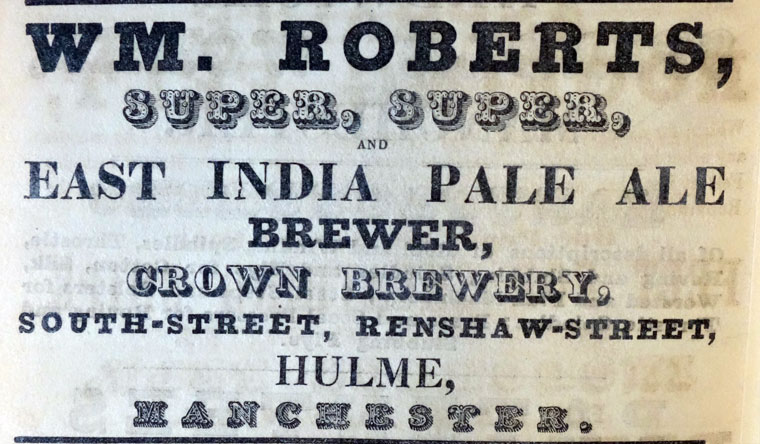 WM. ROBERTS,
SUPER, SUPER,
AND
EAST INDIA PALE ALE
BREWER,
CROWN BREWERY,
SOUTH-STREET, RENSHAW-STREET,
HULME,
MANCHESTER.